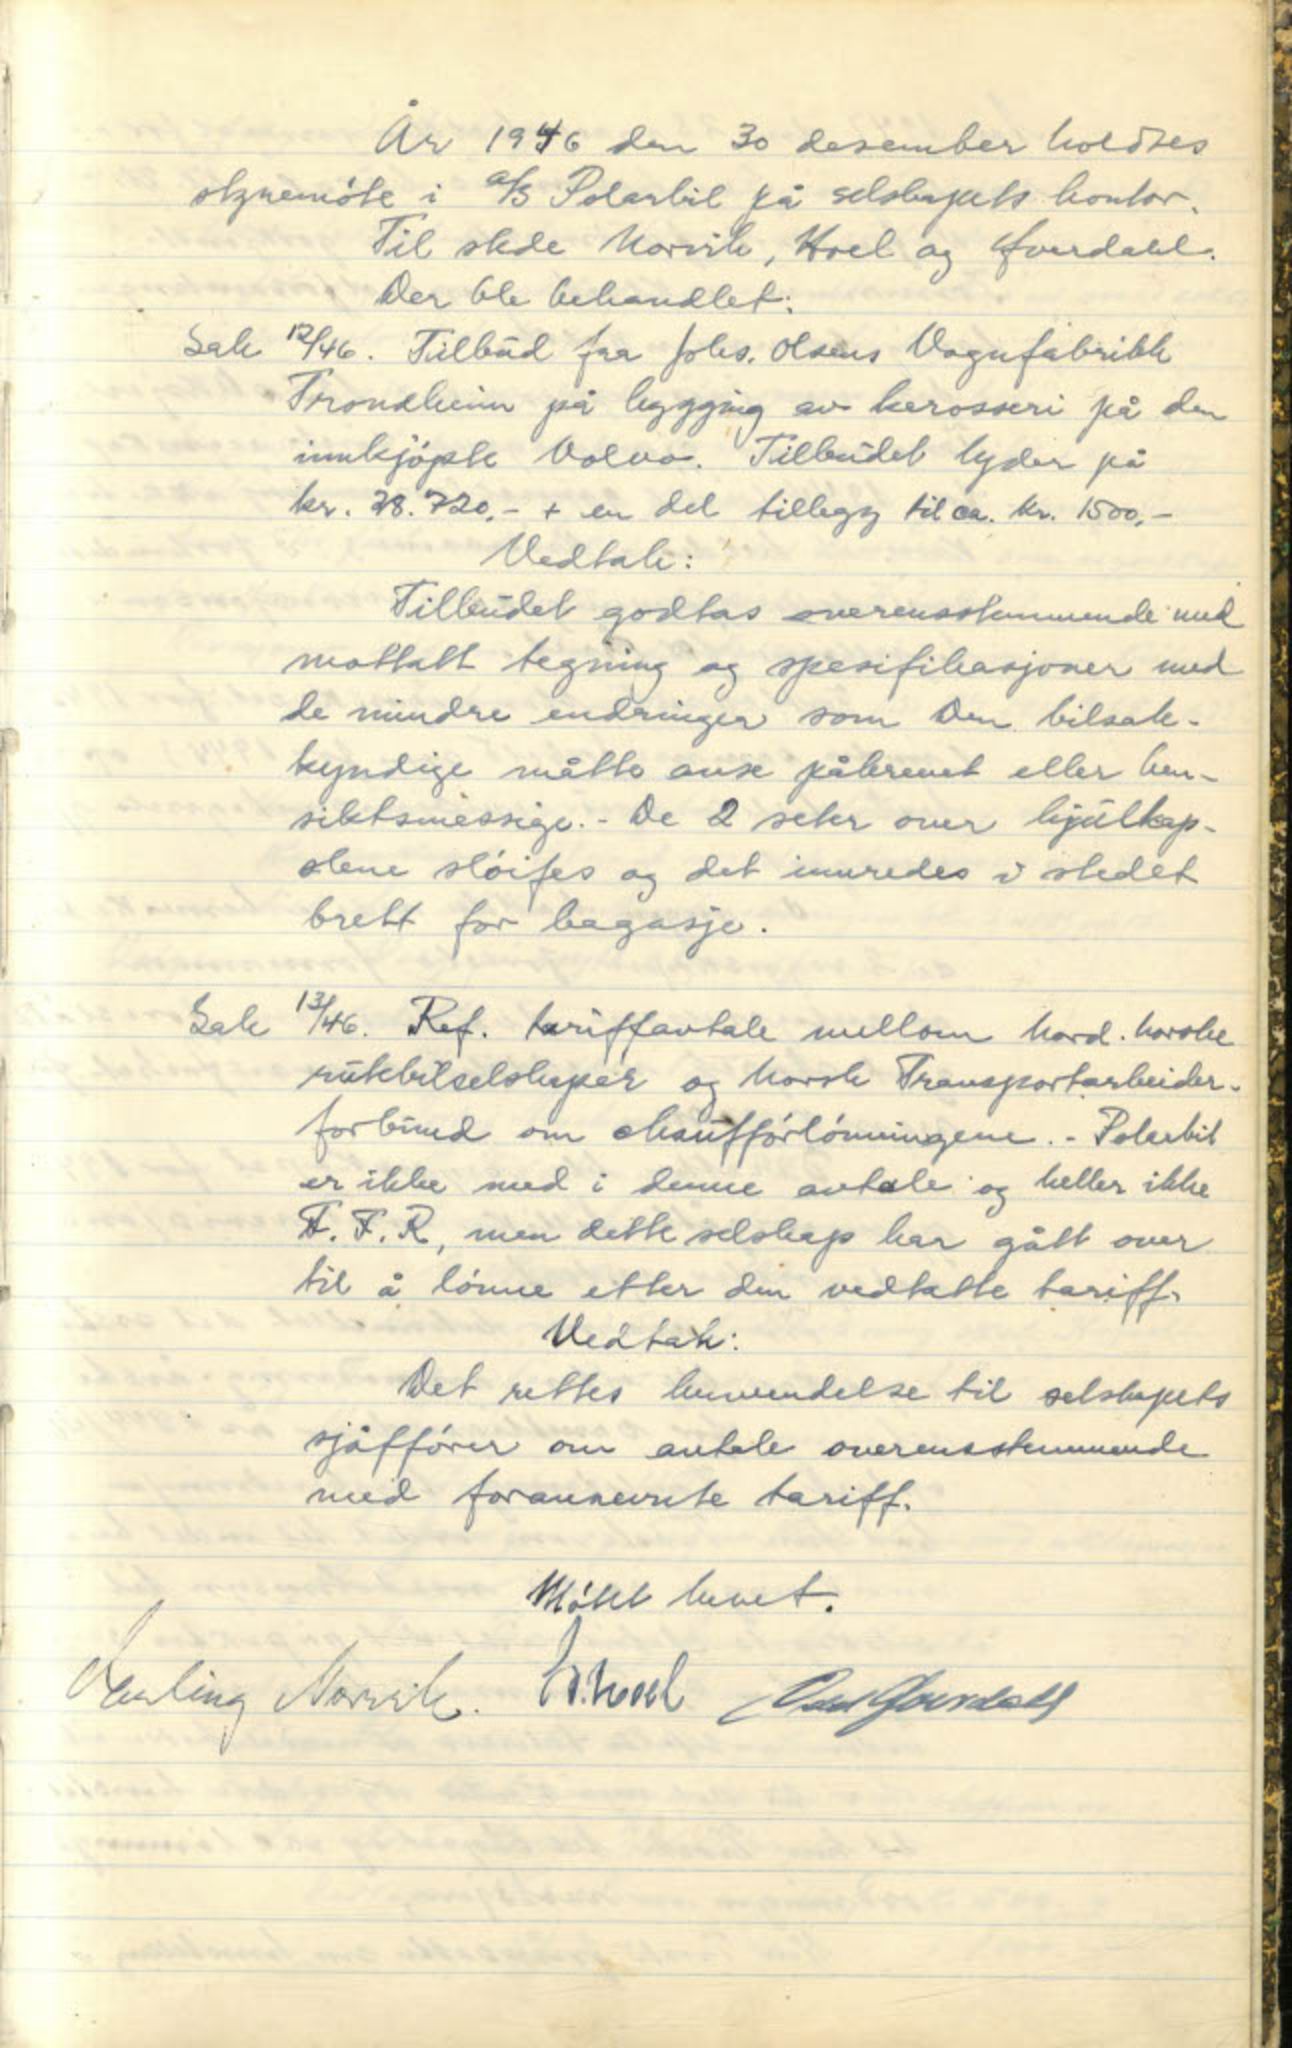 År 1946 den 30 desember holdtes
styremöte i a/s Polarbil på selskapets kontor.
Til stede Norvik, Hoel og Gverdahl.
Der ble behandlet:
Sak 12/46. Tilbud fra Johs. Olsens Vognfabrikk
Trondheim på bygging av karosseri på den
innkjöpte Volvo. Tilbudet lyder på
kr. 28.720,- + en del tillegg til ca. kr. 1500,-
Vedtak:
Tilbudet godtas overensstemmende med
mottatt tegning og spesifikasjoner med
de mindre endringer som Den bilsak-
kyndige måtte anse påkrevet eller hen-
siktsmessige. - De 2 seter over hjulkap-
slene slöifes og det innredes i stedet
brett for bagasje.
Sak 13/46. Ref. tariffavtale mellom Nord. Norske
rutebilselskaper og Norsk Transportarbeider-
forbund om chaufförlönningene. - Polarbil
er ikke med i denne avtale og heller ikke
F.F.R, men dette selskap har gått over
til å lönne etter den vedtatte tariff.
Vedtak:
Det rettes henvendelse til selskapets
sjåfförer om avtale overensstemmende
med forannevnte tariff.
Mötet hevet.
Norvik. Hoel